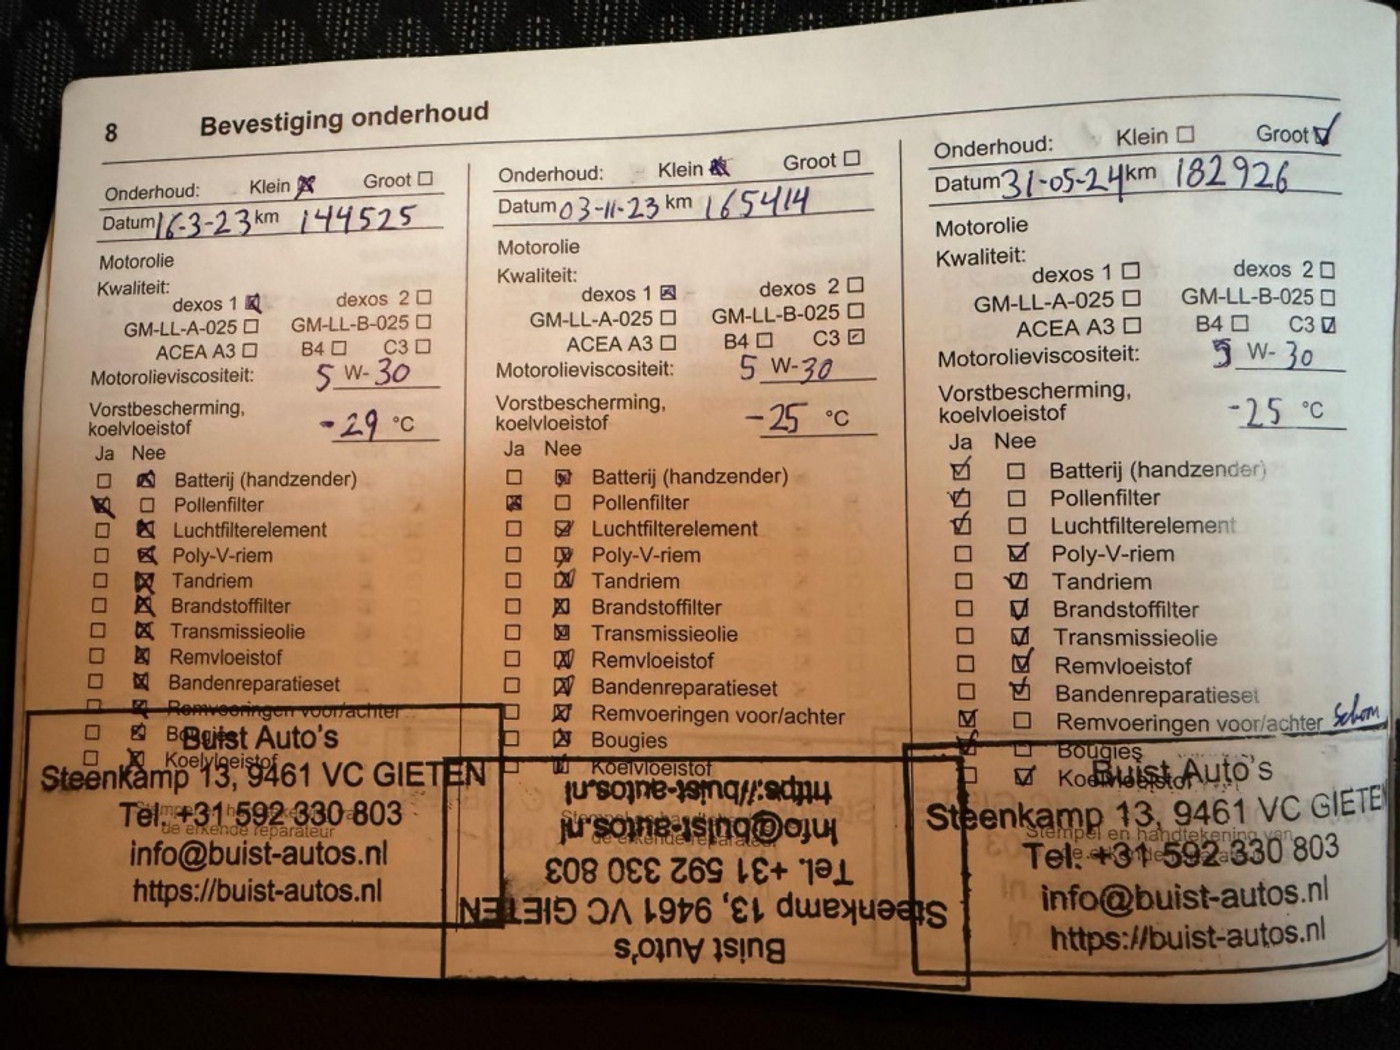 8 Bevestiging onderhoud
Onderhoud: Klein Groot
Datum 16-3-23 km 144525
Motorolie
Kwaliteit:
dexos 1 dexos 2
GM-LL-A-025 GM-LL-B-025
ACEA A3 B4 C3
Motorolieviscositeit: 5 W-30
Vorstbescherming,
koelvloeistof -29 °C
Ja Nee
Batterij (handzender)
Pollenfilter
Luchtfilterelement
Poly-V-riem
Tandriem
Brandstoffilter
Transmissieolie
Remvloeistof
Bandenreparatieset
Remvoeringen voor/achter
Bougies
Koelvloeistof
Stempel en handtekening van
de erkende reparateur
Buist Auto's
Steenkamp 13, 9461 VC GIETEN
Tel. +31 592 330 803
info@buist-autos.nl
https://buist-autos.nl
Onderhoud: Klein Groot
Datum 03-11-23 km 165414
Motorolie
Kwaliteit:
dexos 1 dexos 2
GM-LL-A-025 GM-LL-B-025
ACEA A3 B4 C3
Motorolieviscositeit: 5 W-30
Vorstbescherming,
koelvloeistof -25 °C
Ja Nee
Batterij (handzender)
Pollenfilter
Luchtfilterelement
Poly-V-riem
Tandriem
Brandstoffilter
Transmissieolie
Remvloeistof
Bandenreparatieset
Remvoeringen voor/achter
Bougies
Koelvloeistof
Stempel en handtekening van
de erkende reparateur
Buist Auto's
Steenkamp 13, 9461 VC GIETEN
Tel. +31 592 330 803
info@buist-autos.nl
https://buist-autos.nl
Onderhoud: Klein Groot
Datum 31-05-24 km 182926
Motorolie
Kwaliteit:
dexos 1 dexos 2
GM-LL-A-025 GM-LL-B-025
ACEA A3 B4 C3
Motorolieviscositeit: 5 W-30
Vorstbescherming,
koelvloeistof -25 °C
Ja Nee
Batterij (handzender)
Pollenfilter
Luchtfilterelement
Poly-V-riem
Tandriem
Brandstoffilter
Transmissieolie
Remvloeistof
Bandenreparatieset
Remvoeringen voor/achter
Bougies
Koelvloeistof
Stempel en handtekening van
de erkende reparateur
Buist Auto's
Steenkamp 13, 9461 VC GIETEN
Tel. +31 592 330 803
info@buist-autos.nl
https://buist-autos.nl